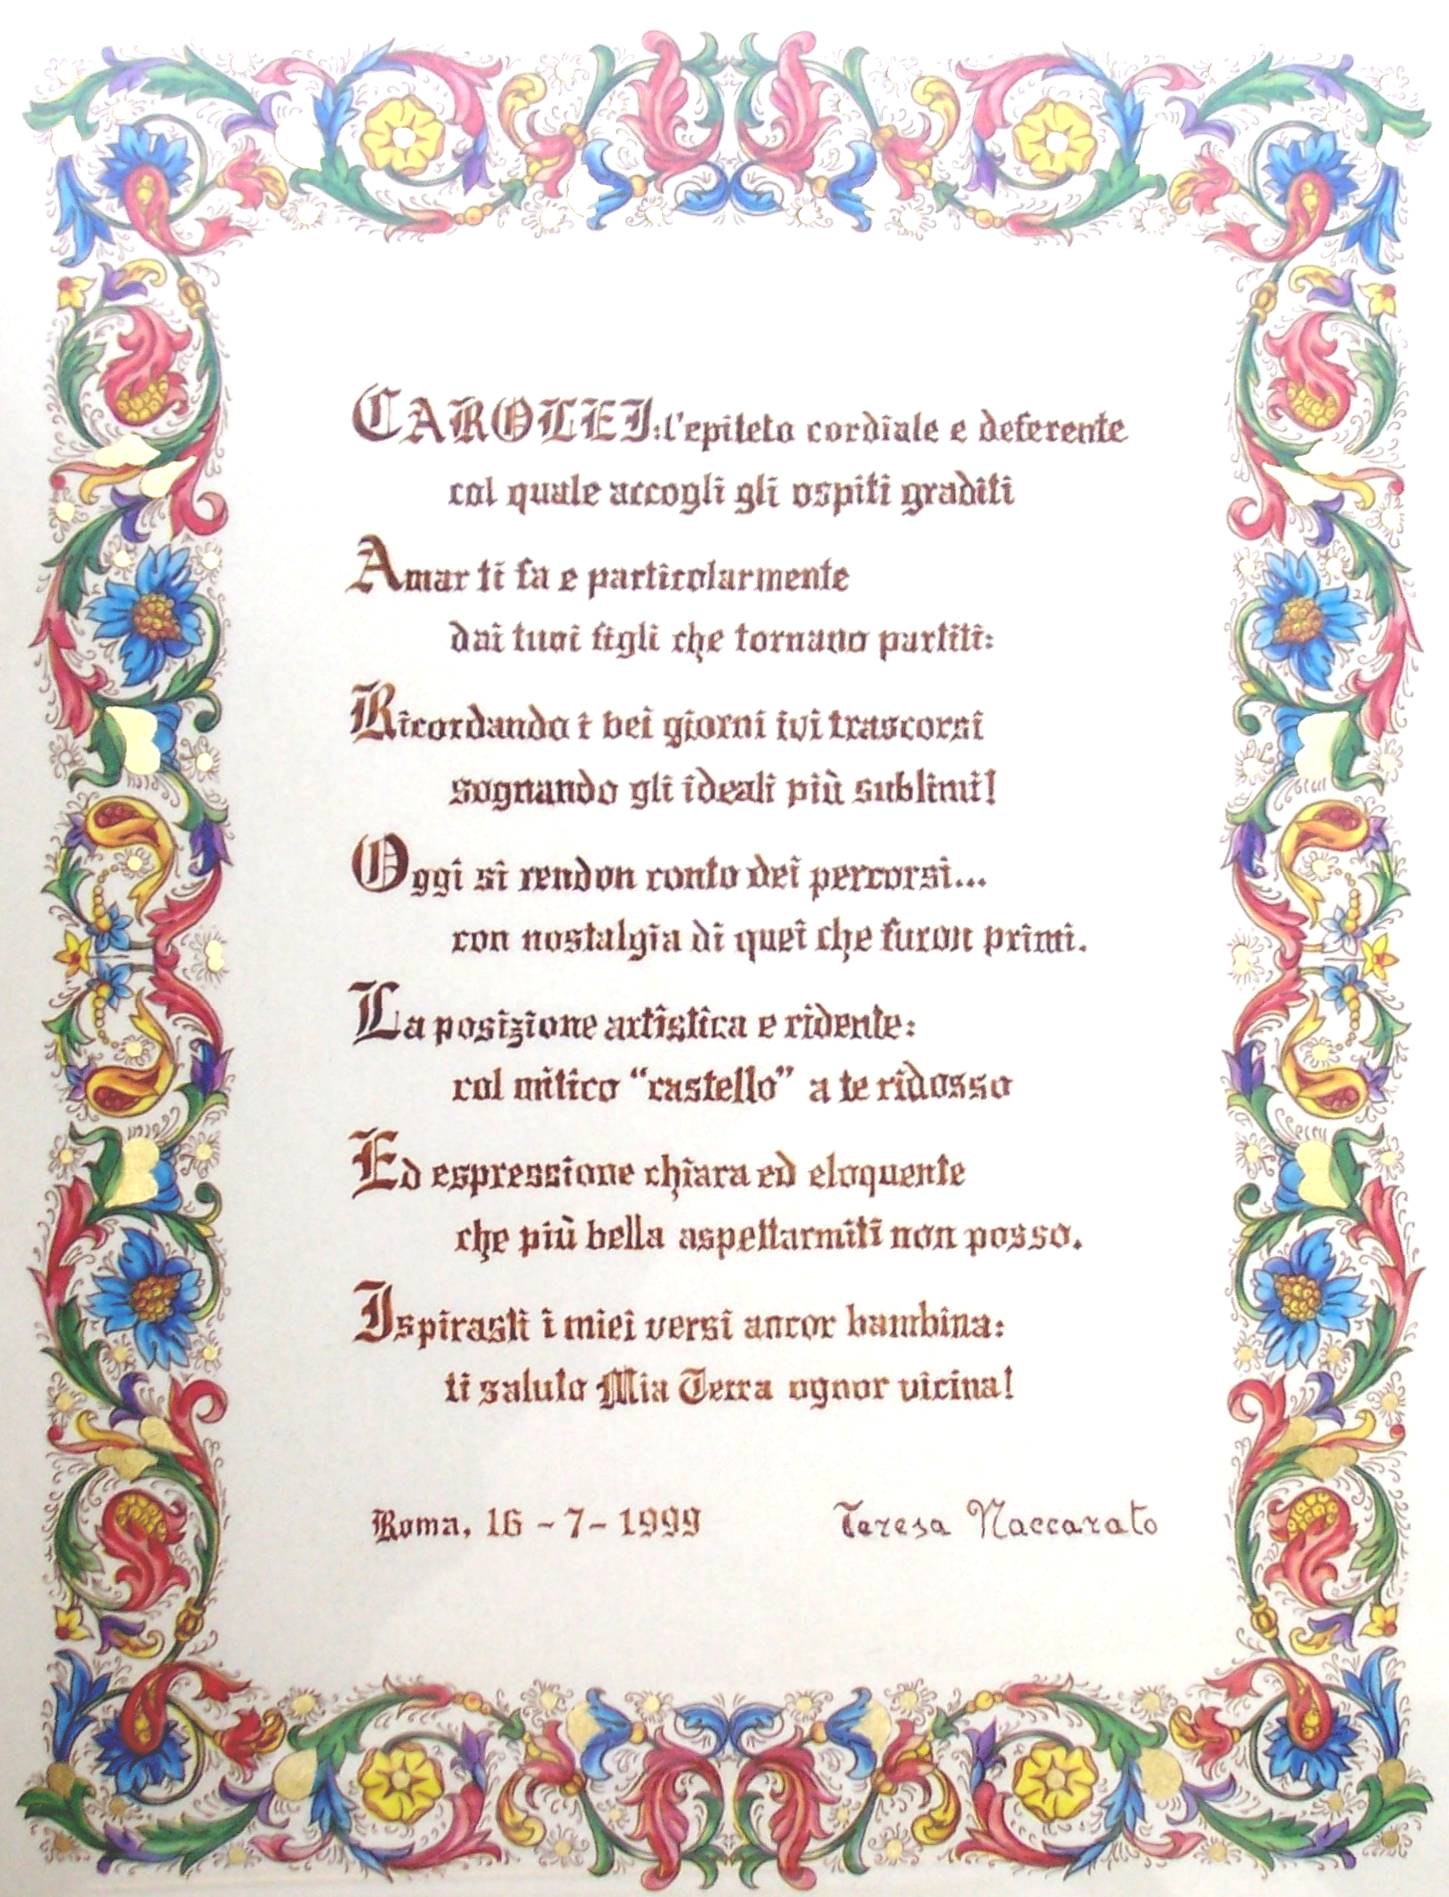 CAROLEI: l'epiteto cordiale e deferente
col quale accogli gli ospiti graditi
Amar ti fa e particolarmente
dai tuoi figli che tornano partiti:
Ricordando i bei giorni ivi trascorsi
sognando gli ideali più sublimi!
Oggi si rendon conto dei percorsi...
con nostalgia di quei che furon primi.
La posizione artistica e ridente:
col mitico "castello" a te ridosso
Ed espressione chiara ed eloquente
che più bella aspettarmiti non posso.
Ispirasti i miei versi ancor bambina:
ti saluto Mia Terra ognor vicina!
Roma, 16-7-1999 Teresa Naccarato